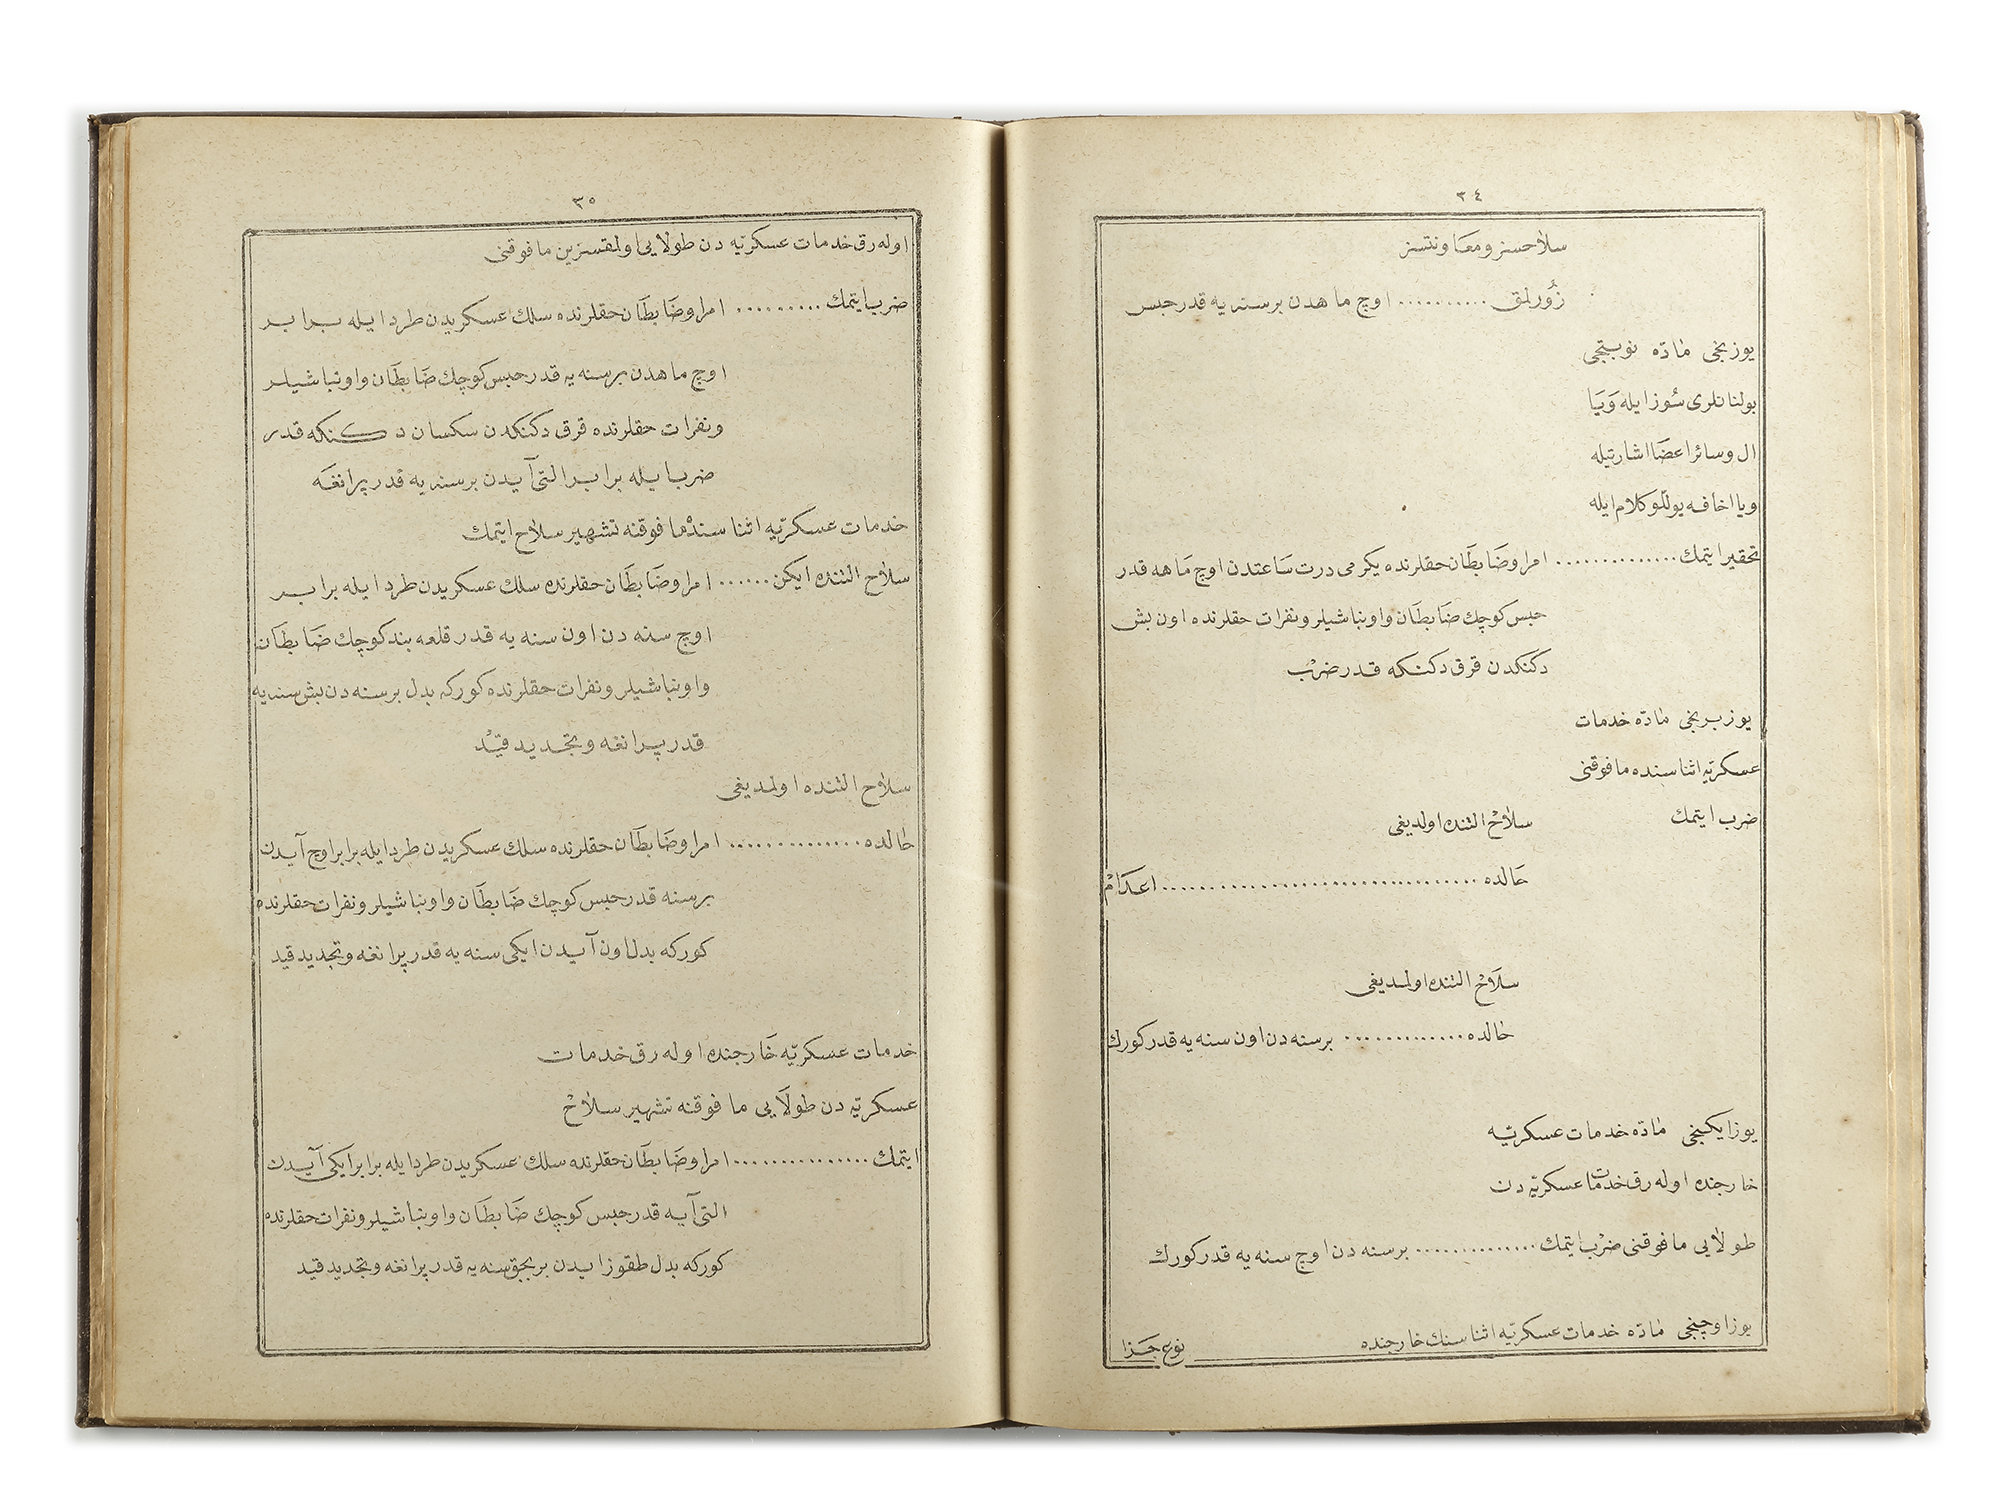 ٣٤
سلاحسز و معاونتسز
زُورلمق .......... اوچ ماهدن برسنه یه قدر حبس
یوزنجی مادّه نوبتجی
بولنانلری سُوز ایله وَیَا
ال و سائر اعضا اشارتیله
ویا اخافه یوللو کلام ایله
تحقیر ایتمك .............. امرا و ضابطان حقلرنده یکرمی درت ساعتدن اوچ ماهه قدر
حبس کوچك ضابطان و اونباشیلر و نفرات حقلرنده اون بش
دکنکدن قرق دکنکه قدر ضرب
یوز برنجی مادّه خدمات
عسکریّه اثناسنده مافوقنی
ضرب ایتمك سلاح التنده اولدیغی
حالده .................................... اعدام
سلاح التنده اولمدیغی
حالده .............. برسنه دن اون سنه یه قدر کورك
یوز ایکنجی مادّه خدمات عسکریّه
خارجنده اوله رق خدمات عسکریّه دن
طولایی مافوقنی ضرب ایتمك .............. برسنه دن اوچ سنه یه قدر کورك
یوز اوچنجی مادّه خدمات عسکریّه اثناسنك خارجنده
نوع جزا
٣٥
اوله رق خدمات عسکریّه دن طولایی اولمقسزین مافوقنی
ضرب ایتمك .......... امرا و ضابطان حقلرنده سلك عسکریدن طرد ایله برابر
اوچ ماهدن برسنه یه قدر حبس کوچك ضابطان و اونباشیلر
و نفرات حقلرنده قرق دکنکدن سکسان دکنکه قدر
ضرب ایله برابر التی آیدن برسنه یه قدر پرانغه
خدمات عسکریّه اثناسنده مافوقنه تشهیر سلاح ایتمك
سلاح التنده ایکن ...... امرا و ضابطان حقلرنده سلك عسکریدن طرد ایله برابر
اوچ سنه دن اون سنه یه قدر قلعه بند کوچك ضابطان
و اونباشیلر و نفرات حقلرنده کورکه بدل برسنه دن بش سنه یه
قدر پرانغه و تجدید قید
سلاح التنده اولمدیغی
حالده .............. امرا و ضابطان حقلرنده سلك عسکریدن طرد ایله برابر اوچ آیدن
برسنه قدر حبس کوچك ضابطان و اونباشیلر و نفرات حقلرنده
کورکه بدل اون آیدن ایکی سنه یه قدر پرانغه و تجدید قید
خدمات عسکریّه خارجنده اوله رق خدمات
عسکریّه دن طولایی مافوقنه تشهیر سلاح
ایتمك .............. امرا و ضابطان حقلرنده سلك عسکریدن طرد ایله برابر ایکی آیدن
التی آیه قدر حبس کوچك ضابطان و اونباشیلر و نفرات حقلرنده
کورکه بدل طقوز ایدن بربچق سنه یه قدر پرانغه و تجدید قید